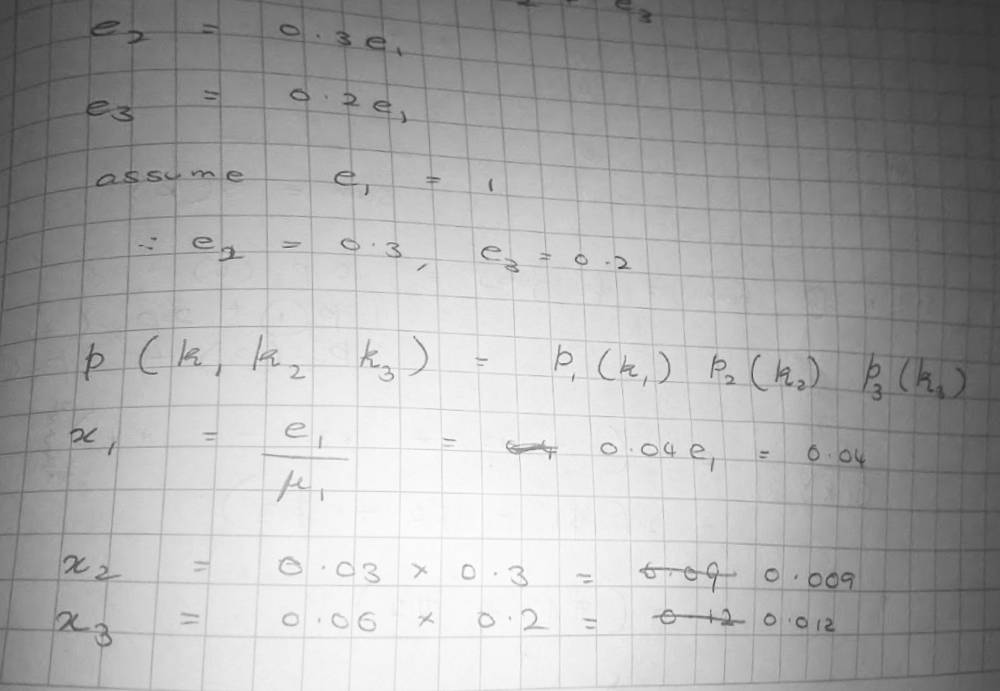 e₃
e₂ = 0.3e₁
e₃ = 0.2e₁
assume e₁ = 1
∴ e₂ = 0.3, e₃ = 0.2
p (k₁ k₂ k₃) = p₁(k₁) p₂(k₂) p₃(k₃)
x₁ = e₁/μ₁ = 0.04e₁ = 0.04
x₂ = 0.03 × 0.3 = 0.09 0.009
x₃ = 0.06 × 0.2 = 0.12 0.012